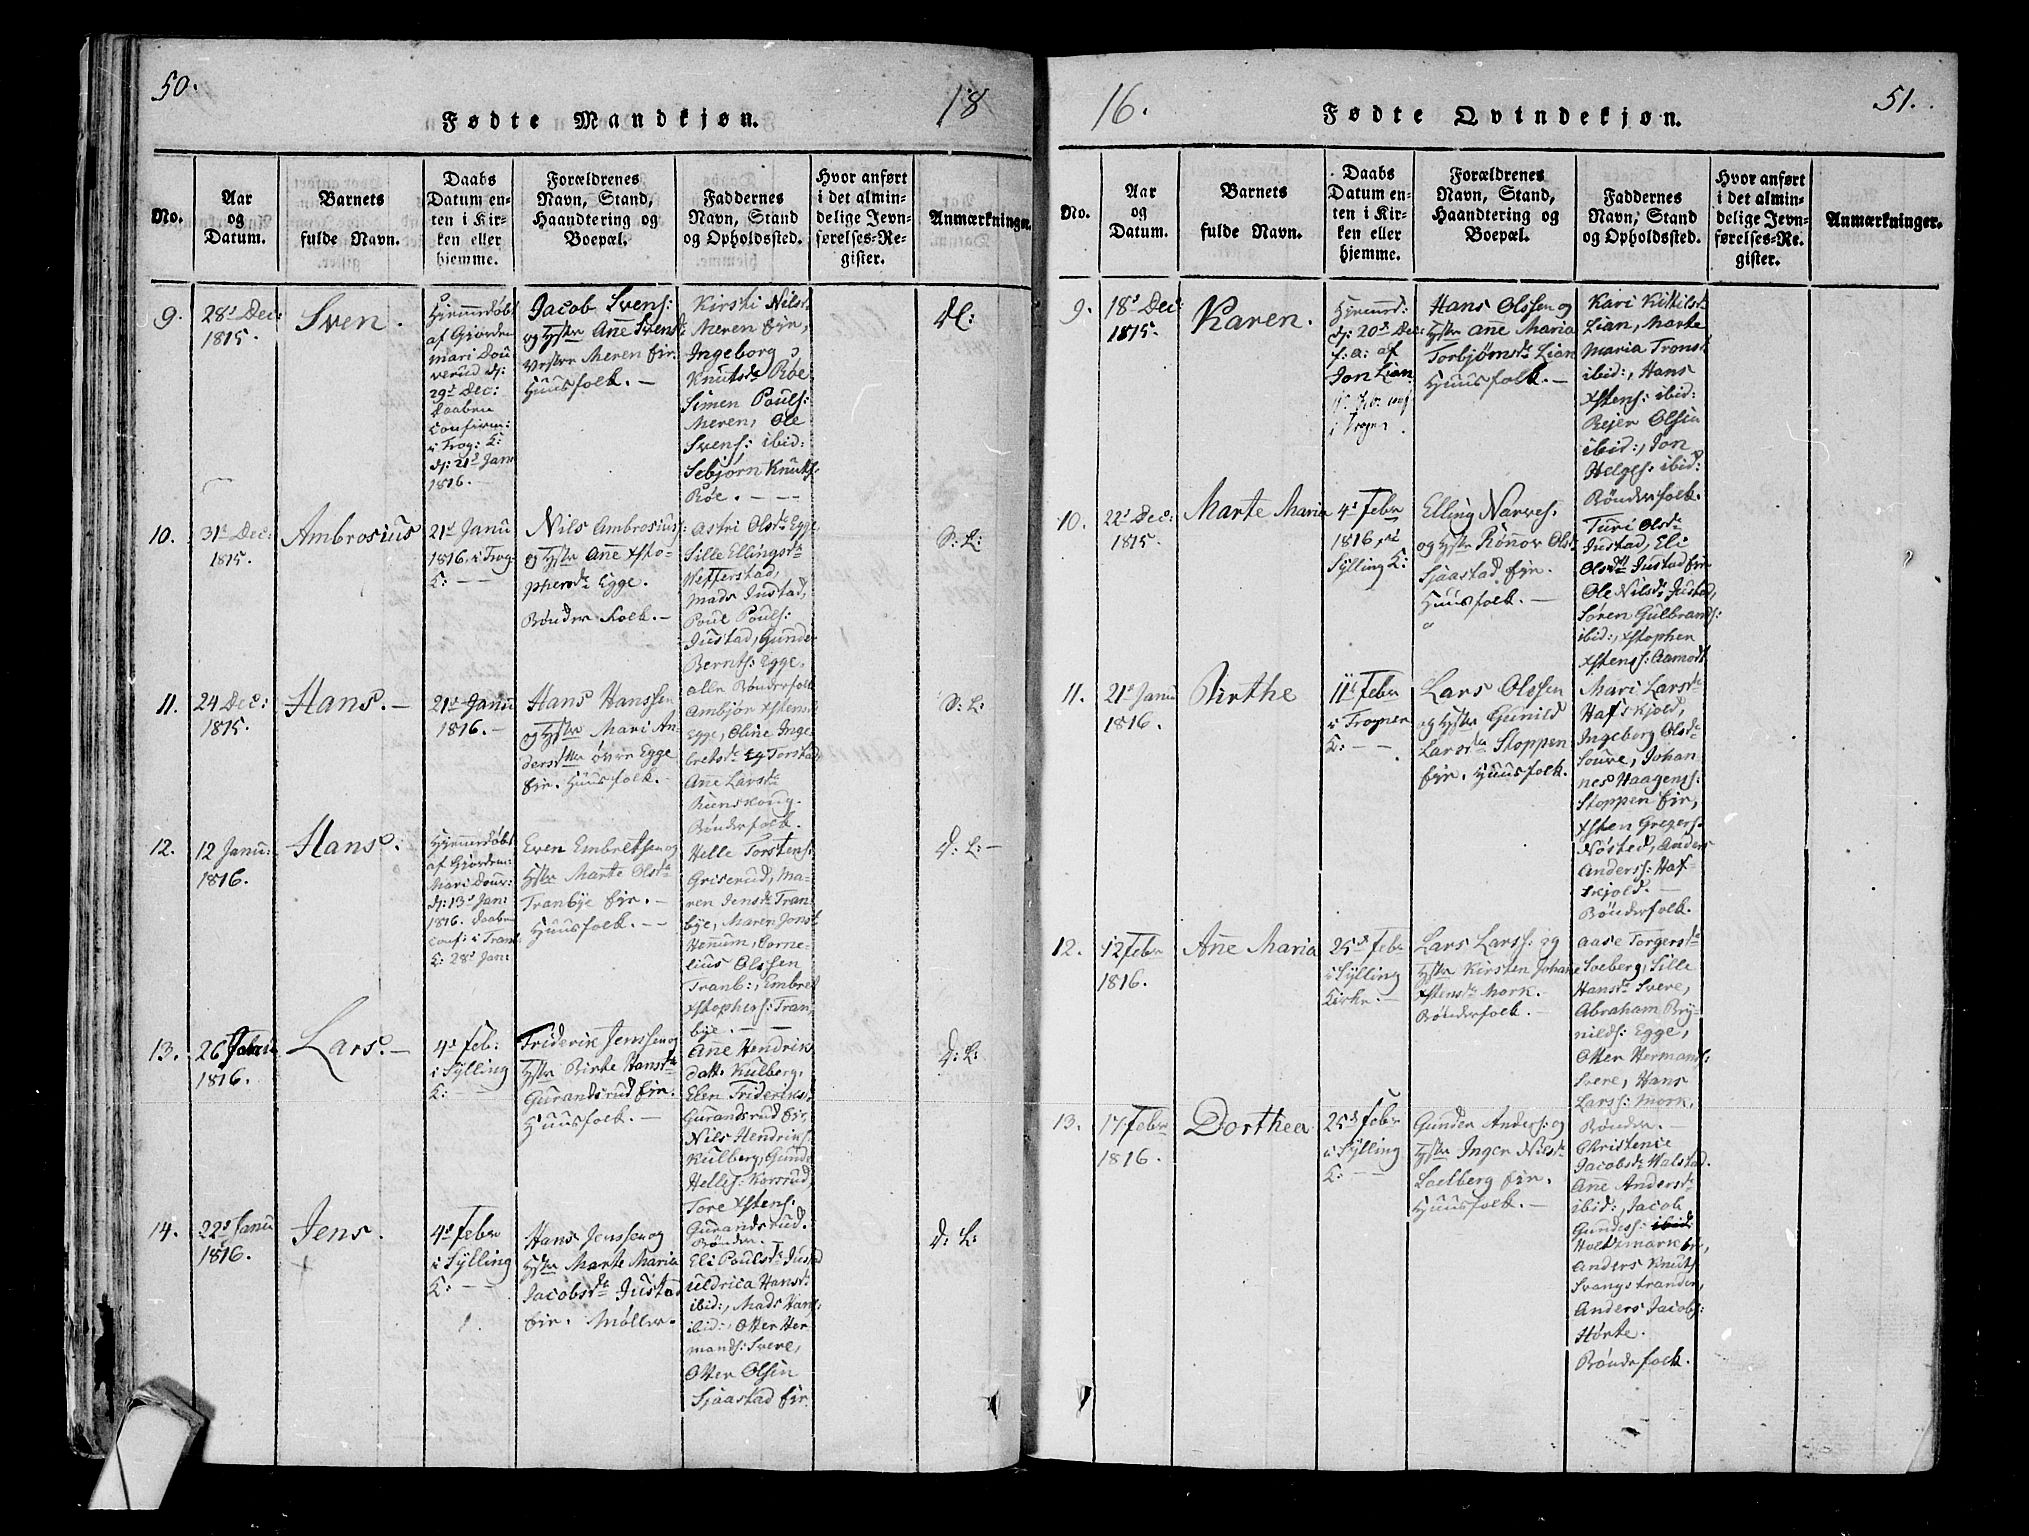 50.
Fødte Mandkjøn.
18
No.
Aar
og
Datum.
Barnets
fulde Navn.
Daabs
Datum en-
ten i Kir-
ken eller
hjemme.
Forældrenes
Navn, Stand,
Haandtering og
Boepæl.
Faddernes
Navn, Stand
og Opholdssted.
Hvor anført
i det almin-
delige Jevn-
førelses-Re-
gister.
Anmærkninger.
9.
28d Dec:
1815.
Sven.
Hjemmedøbt
af Giordem
mari Dou
verud d:
29d Dec:
Daaben
confirm:
i Trog: K:
d: 21d Jan
1816. —
Jacob Svens:
og Hstr Ane Svensd:
Vestre Meren Eir.
Huusfolk. —
Kirsti Nilsd
Meren Eir,
Ingeborg
Knutsdr Røe
Simen Pouls:
Meren, Ole
Svens: ibid:
Sebjørn Knuts:
Røe. — — —
Dl:
10.
31d Dec:
1815.
Ambrosius
21d Janu
1816. i Trog
K: — —
Nils Ambrosius:
og Hstr Ane Xsto-
phersdr Egge.
Bønder Folk. —
Astri Olsdr Egge
Sille Ellingsdr
Wefferstad,
Mads Justad,
Poul Pouls:
Justad, Gunder
Bernts: Egge.
alle Bønderfolk
S: L:
11.
24 Dec:
1815.
Hans. —
21d Janu
1816. —
Hans Hanssen
og Hstr Mari An
dersdttr øvre Egge
Eir. Huusfolk. —
Ambjør Xstens:
Egge, Oline Inge
bretsdr Eg Torstad,
Ane Larsdr
Rienskoug.
Bønderfolk.
S: L:
12.
12 Janu:
1816.
Hans:
Hjemmedøbt
af Giordem:
Mari Dour:
d: 13d Jan:
1816. Daaben
conf: i Tranb
K: 28d Jan:
Even Embretsen og
Hstr Marte Olsdr
Tranbye Eir. —
Huusfolk. — —
Helle Torstens:
Griserud, Ma-
ren Jensdr Tran
bye, Maren Jonsd
Henum, Corne-
lius Olssen
Tranb:, Embret
Xstophers: Tran
bye. — —
D: L: —
13.
26
1816.
Lars. —
4d Feb:
i Sylling
K: — —
Friderik Jenssen og
Hstr Birte Hansdr
Gurandsrud Eir.
Huusfolk. —
Ane Hendrik
datt. Kulberg,
Elen Frideriks:
Gurandsrud Eir,
Nils Hendriks:
Kulberg, Gunde
Helles: Korsrud,
Tore Xstens:
Gurandsrud.
Bønder. —
D: L:
14.
22d Janu
1816.
Jens.
4d Febr
i Sylling
K: — —
Hans Jenssen og
Hstr Marte Maria
Jacobsdr Justad
Eir. Møller.
Eli Poulsdr Justad
Uldrica Hansdr
ibid:, Mads Hans:
ibid:, Otter Her
mands: Svere,
Otter Olsen
Sjaastad Eir
D: L:
16.
Fødte Qvindekjøn.
51.
No.
Aar
og
Datum.
Barnets
fulde Navn.
Daabs
Datum en-
ten i Kir-
ken eller
hjemme.
Forældrenes
Navn, Stand,
Haandtering og
Boepæl.
Faddernes
Navn, Stand
og Opholdssted.
Hvor anført
i det almin-
delige Jevn-
førelses-Re-
gister.
Anmærkninger.
9.
18d Dec:
1815.
Karen.
Hjemmed:
d: 20d Dec:
f: a: af
Jon Lian
i Trogn.
Hans Olssen og
Hstr Ane Maria
Torbjørnsdr Lian
Huusfolk. —
Kari Kittilsd
Lian, Marte
Maria Tronsd
ibid:, Hans
Xstens: ibid:
Rejer Olsen
ibid:, Jon
Helges: ibid:
Bønderfolk.
10.
22d Dec:
1815.
Marte Maria
4d Febr
1816, i
Sylling K:
Elling Narves.
og Hstr Rønnov Olsdr
Sjaastad Eir.
Huusfolk. —
Turi Olsdr
Justad, Eli
Olsdr Justad Eir
Ole Nils: Justad,
Søren Gulbrands:
ibid:, Xstophen
Xstens: Aamodt
11.
21d Janu
1816.
Birthe
11d Febr
i Trognen
K: — —
Lars Olssen
og Hstr Gunild
Larsdr Stoppen
Eir. Huusfolk.
Mari Larsdr
Hafskjold,
Ingeborg Olsdr
Soure, Johan
nes Haagens:
Stoppen Eir,
Xsten Gregers:
Nøsted, Anders
Anders: Haf-
skjold. —
Bønderfolk.
12.
12 Febr
1816.
Ane Maria
25d Febr
i Sylling
Kirke. —
Lars Larss: og
Hstr Kirsten Johane
Xstensdr Mork.
Bønderfolk. —
Aase Torgersdr
Soeberg, Sille
Hansdr Svere,
Abraham Bry-
nilds: Egge,
Otter Hermans:
Svere, Hans
Larss: Mork,
Bønder. —
13.
17 Febr
1816.
Dorthea
25d Febr
i Sylling
K: — —
Gunder Anders: og
Hstr Inger Nilsdr
Loelberg Eir.
Huusfolk. —
Christence
Jacobsdr Walstad.
Ane Andersdr
ibid:, Jacob
Gunders: ibid
Holtsmark Eir,
Anders Knuts:
Svangstranden,
Anders Jacobs:
Hørte.
Bønderfolk.